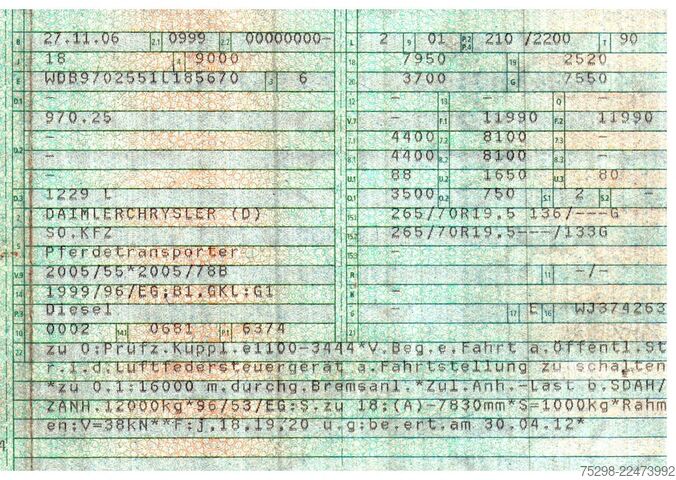 B 27.11.06 2.1 0999 2.2 00000000- L 2 9 01 P.2 P.4 210 /2200 T 90
J 18 4 9000 18 7950 19 2520
E WDB9702551L185670 3 6 20 3700 G 7550
D.1 - 12 - 13 - Q -
970.25 V.7 - F.1 11990 F.2 11990
- 7.1 4400 7.2 8100 7.3 -
D.2 - 8.1 4400 8.2 8100 8.3 -
- U.1 88 U.2 1650 U.3 80
D.3 1229 L O.1 3500 O.2 750 S.1 2 S.2 -
2 DAIMLERCHRYSLER (D) 15.1 265/70R19.5 136/---G
SO.KFZ 15.2 265/70R19.5---/133G
5 Pferdetransporter 15.3 -
V.9 2005/55*2005/78B R - 11 -/-
14 1999/96/EG;B1,GKL:G1 K -
P.3 Diesel 6 - 17 E 16 WJ374263
10 0002 14.1 0681 P.1 6374 21
22 zu O:Prüfz.Kuppl.e1100-3444*V.Beg.e.Fahrt a.öffentl.St
r.i.d.Luftfedersteuergerät a.Fahrtstellung zu schalten
*zu O.1:16000 m.durchg.Bremsanl.*Zul.Anh.-Last b.SDAH/
ZANH.12000kg*96/53/EG:S.zu 18:(A)-7830mm*S=1000kg*Rahm
en:V=38kN**F:j,18,19,20 u.g:be.ert.am 30.04.12*
75298-22473992